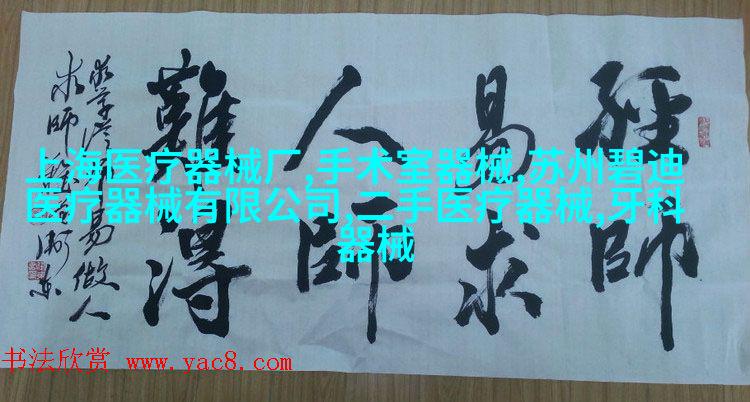 經師
易求
人師
難得
易做人
求師
上海医疗器械厂,手术室器械,苏州碧迪
医疗器械有限公司,二手医疗器械,牙科
器械
书法欣赏 www.yac8.com